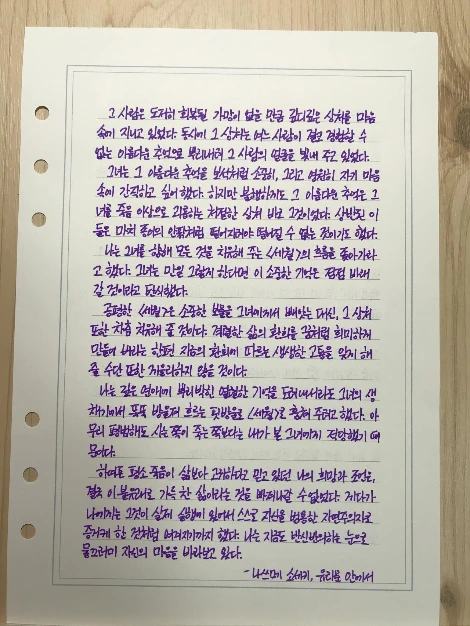 그 사람은 도저히 회복될 가망이 없을 만큼 깊디깊은 상처를 마음
속에 지니고 있었다. 동시에 그 상처는 여느 사람이 결코 경험할 수
없는 아름다운 추억으로 뿌리내려 그 사람의 얼굴을 빛내 주고 있었다.
그녀는 그 아름다운 추억을 보석처럼 소중히, 그리고 영원히 자기 마음
속에 간직하고 싶어 했다. 하지만 불행하게도 그 아름다운 추억은 그
녀를 죽음 이상으로 괴롭히는 처절한 상처 바로 그것이었다. 상반된 이
둘은 마치 종이의 안팎처럼 떨어지려야 떨어질 수 없는 것이기도 했다.
나는 그녀를 향해 모든 것을 치유해 주는 <세월>의 흐름을 좇아가라
고 했다. 그녀는 만일 그렇게 한다면 이 소중한 기억은 점점 바래
갈 것이라고 탄식했다.
공평한 <세월>은 소중한 보물을 그녀에게서 빼앗는 대신, 그 상처
또한 차츰 치유해 줄 것이다. 격렬한 삶의 환희를 꿈처럼 희미하게
만들어 버리는 한편 지금의 환희에 따르는 생생한 고통을 잊게 해
줄 수단 또한 게을리하지 않을 것이다.
나는 깊은 연애에 뿌리박힌 열렬한 기억을 도려내서라도 그녀의 생
채기에서 뚝뚝 방울져 흐르는 핏방울을 <세월>로 훔쳐 주려고 했다. 아
무리 평범해도 사는 쪽이 죽는 쪽보다는 내가 본 그녀에게 적당했기 때
문이다.
하여튼 평소 죽음이 삶보다 고귀하다고 믿고 있던 나의 희망과 조언은,
결국 이 불유쾌로 가득 찬 삶이라는 것을 빠져나갈 수 없었다. 게다가
나에게는 그것이 실제 실행에 있어서 스스로 자신을 범용한 자연주의자로
증거케 한 것처럼 여겨지기까지 했다. 나는 지금도 반신반의하는 눈으로
물끄러미 자신의 마음을 바라보고 있다.
- 나쓰메 소세키, 유리문 안에서